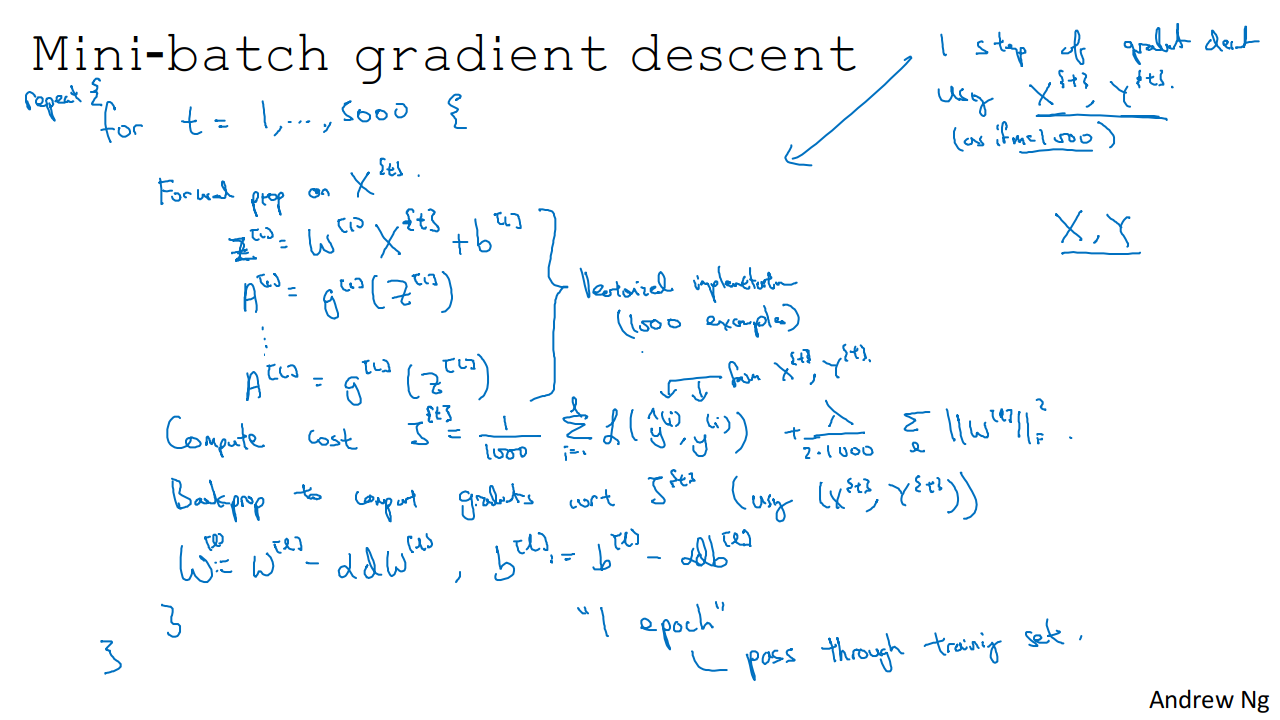 Mini-batch gradient descent
1 step of gradient descent
using X^{t}, Y^{t}.
(as if m=1000)
repeat {
for t = 1,..., 5000 {
X, Y
Forward prop on X^{t}.
Z^[1] = W^[1] X^{t} + b^[1]
A^[1] = g^[1](Z^[1])
⋮
A^[L] = g^[L](Z^[L])
Vectorized implementation
(1000 examples)
from X^{t}, Y^{t}.
Compute cost J^{t} = 1/1000 Σ_{i=1}^{l} L(ŷ^(i), y^(i)) + λ/(2·1000) Σ_l ||W^[l]||_F^2.
Backprop to compute gradients wrt J^{t} (using (X^{t}, Y^{t}))
W^[l] := W^[l] - αdW^[l], b^[l] := b^[l] - αdb^[l]
}
}
"1 epoch"
pass through training set.
Andrew Ng